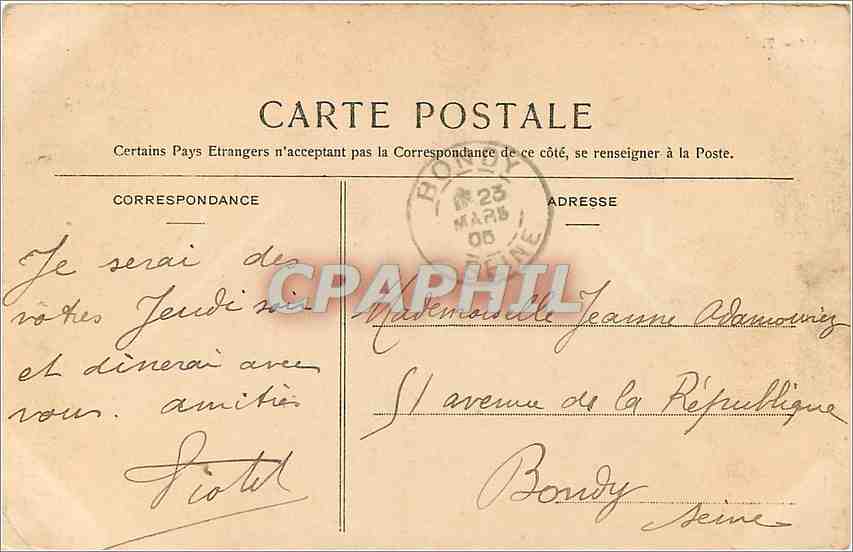 CARTE POSTALE
Certains Pays Etrangers n'acceptant pas la Correspondance de ce côté, se renseigner à la Poste.
CORRESPONDANCE
Je serai des
vôtres Jeudi soir
et dînerai avec
vous. amitiés
BONDY
23
MARS
05
SEINE
CPAPHIL
ADRESSE
Mademoiselle Jeanne Adamowiez
51 avenue de la République
Bondy
Seine